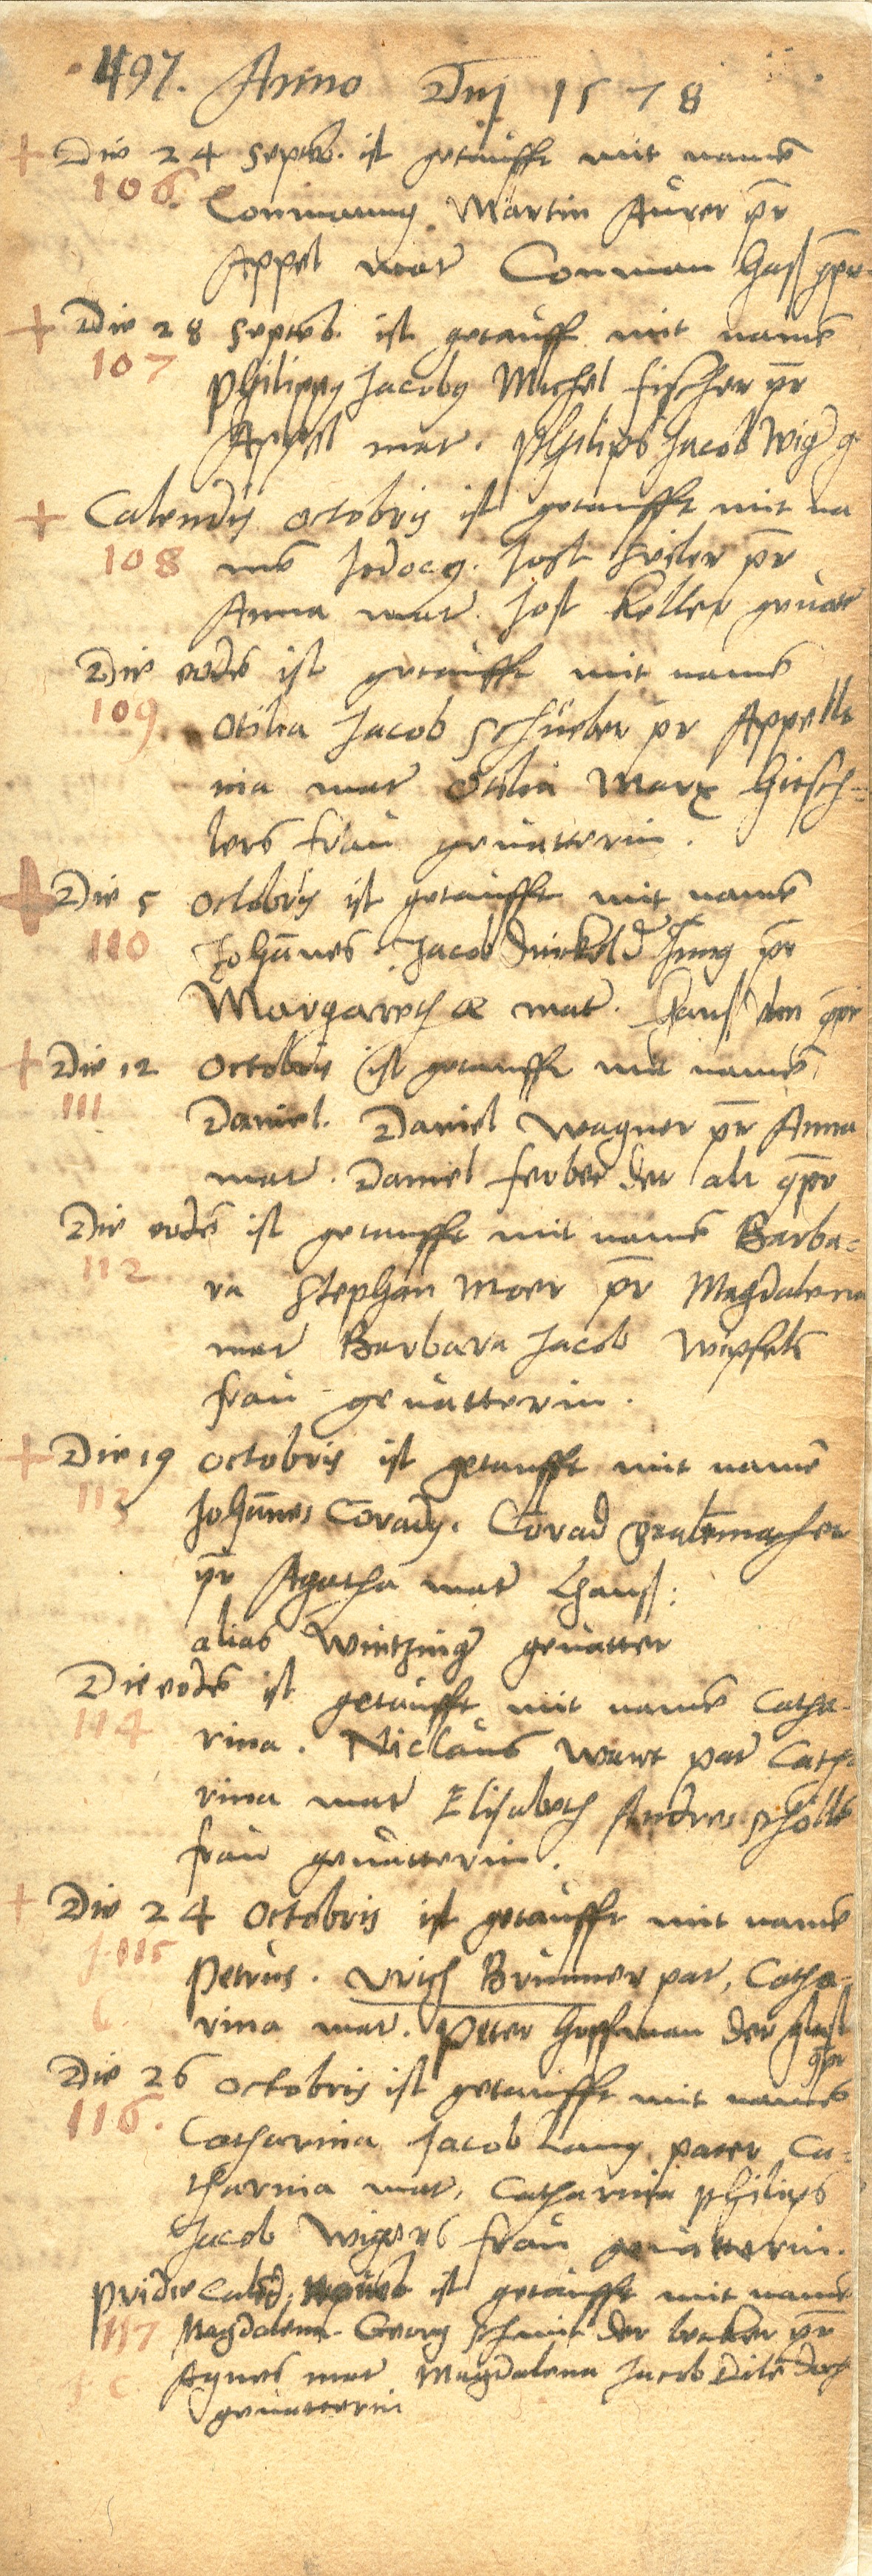 497. Anno Dnj 1578
Die 24 Septeb. ist getaufft mit namē
106. Conmannus Martin Aurer pr̄
Appel mat Conman Hasß gpr
Die 28 Septeb. ist getauff mit namē
107 Philippus Jacobus Michel fischer pr̄
Appel mat. Philips Jacob Wiger g
Calendis octobris ist getaufft mit na
108 mē Jodocus. Jost Seiler pr̄
Anna mat. Jost Keller gevatt
Die eodē ist getaufft mit namē
109. Otilia Jacob Schüeler pr Appello
nia mat Otilia Marx Hirsch=
lers frau gevatterin.
Die 5 octobris ist getaufft mit namē
110 Johānes. Jacob der Jung pr̄
Margarethae mat. gpr
Die 12 Octobris ist getaufft mit namē
111 Daniel. Daniel Wagner pr̄ Anna
mat. Daniel ferber der alt gpr̄
Die eodē ist getaufft mit namē Barba=
112 ra Stephan Moer pr̄ Magdalena
mat Barbara Jacob Wipfels
frau gevatterin.
Die 19 octobris ist getaufft mit namē
113 Johānes Cōradus. Cōrad
pr̄ Agatha mat Chanß:
alias Wintzing gevatter
Die eodē ist getaufft mit namē Catha-
114 rina. Niclaus Wart pat Catha
rina mat Elisabeth Andres Schölls
frau gevatterin.
Die 24 Octobris ist getaufft mit namē
115 Petrus. Vrich Brunner pat, Catha-
rina mat. Peter Hoffman der
gpr
Die 26 octobris ist getaufft mit namē
116. Catharina Jacob Lang pater Ca=
tharina mat, Catharina Philips
Jacob Wigers frau gevatterin.
Pridie Caled, ist getaufft mit namē
117 Magdalena Georg Schmit der becker pr̄
Agnes mat Magdalena Jacob
gevatterin